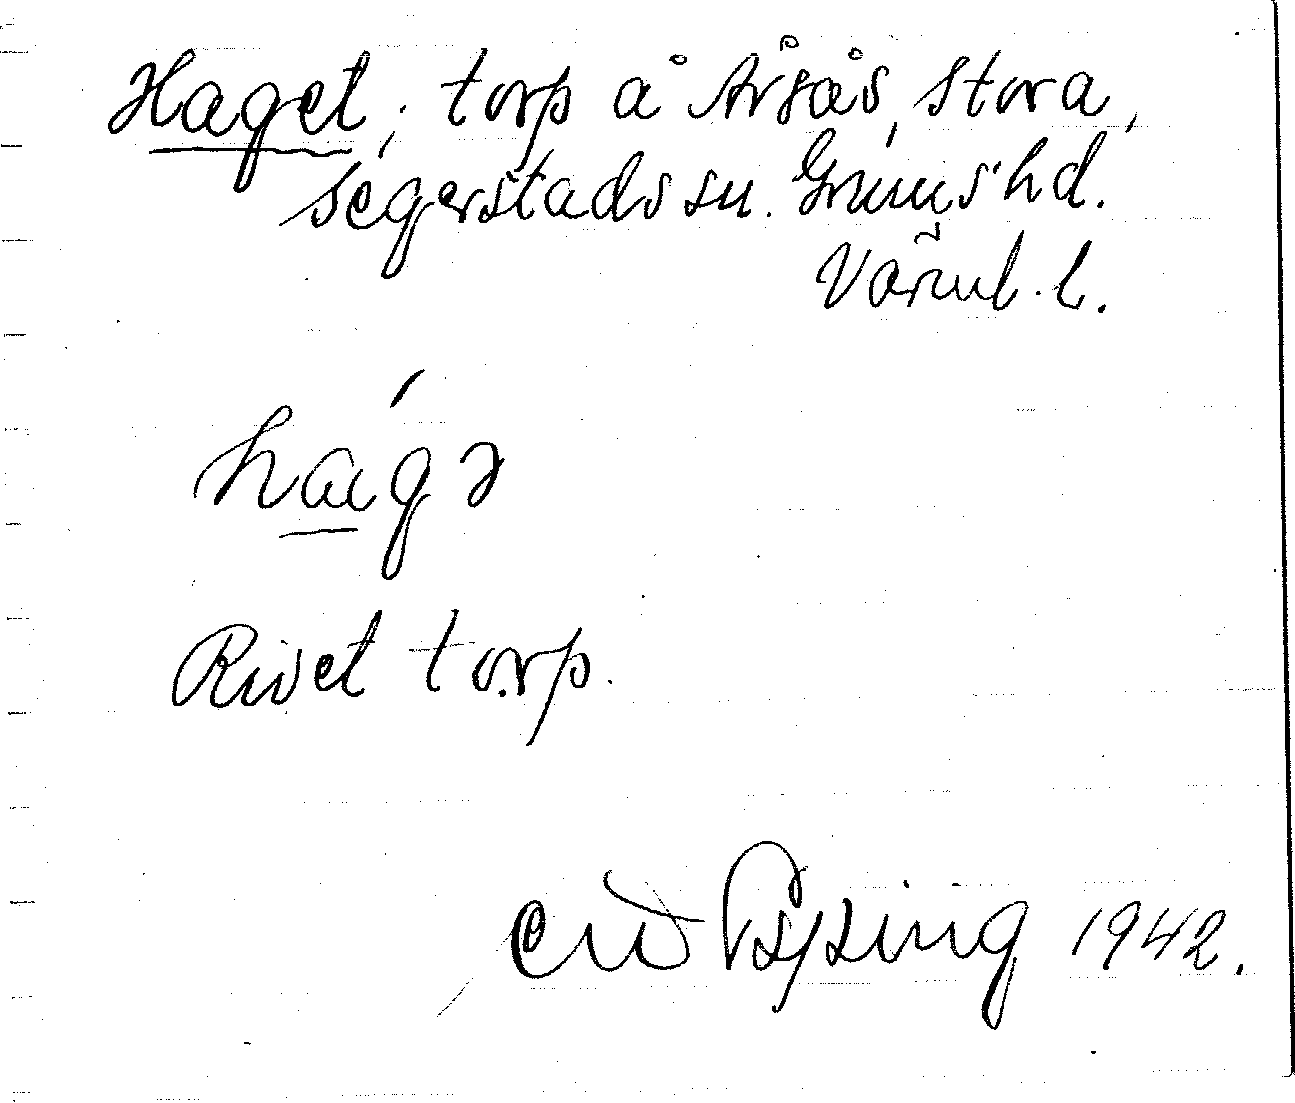 Haget, torp å Årsås, Stora,
Segerstads sn. Grums hd.
Värml. l.
hag ə
Rivet torp.
Erd Esping 1942.